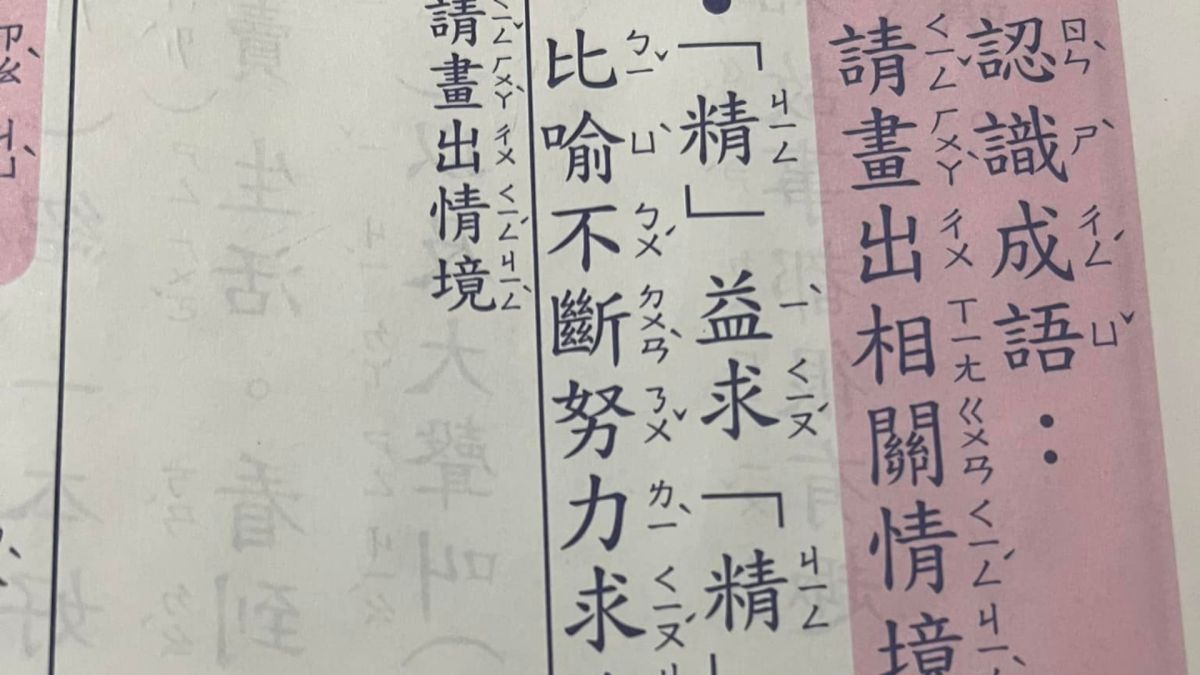 認識成語：
請畫出相關情境
「精」益求「精」
比喻不斷努力求
請畫出情境